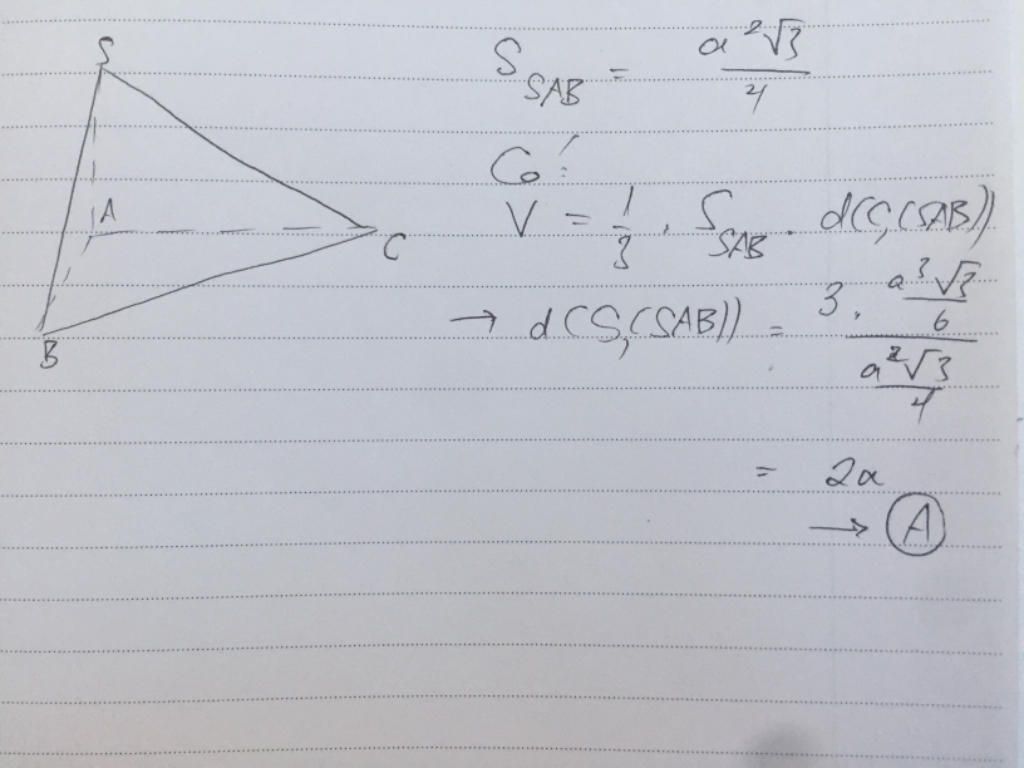 S
A
C
B
S_{SAB} = \frac{a^2\sqrt{3}}{4}
Có:
V = \frac{1}{3} . S_{SAB} . d(C,(SAB))
→ d(C,(SAB)) = \frac{3 . \frac{a^3\sqrt{3}}{6}}{\frac{a^2\sqrt{3}}{4}}
= 2a
→ A